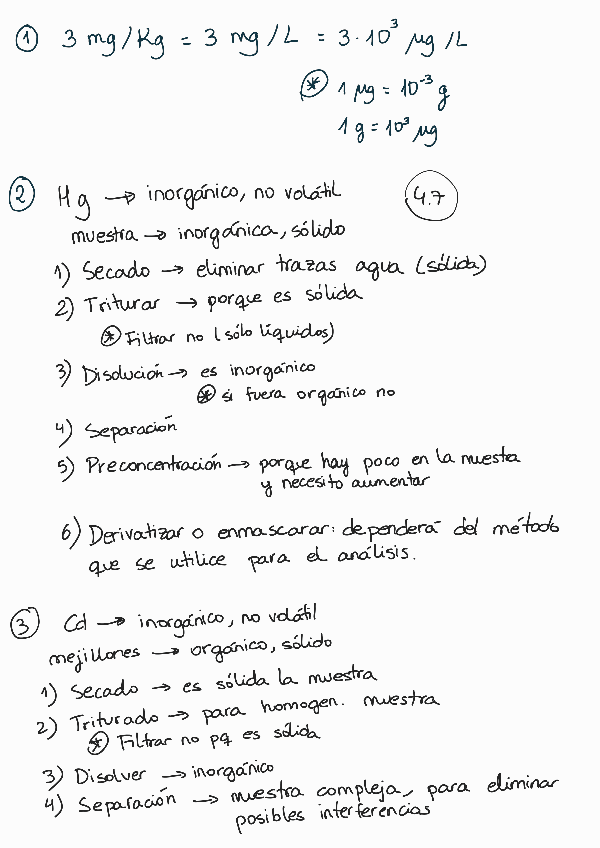 ① 3 mg/Kg = 3 mg/L = 3·10³ μg/L
* 1 μg = 10⁻³ g
1 g = 10³ μg
② Hg → inorgánico, no volátil
4.7
muestra → inorgánica, sólido
1) Secado → eliminar trazas agua (sólida)
2) Triturar → porque es sólida
* Filtrar no (sólo líquidos)
3) Disolución → es inorgánico
* si fuera orgánico no
4) Separación
5) Preconcentración → porque hay poco en la muesta
y necesito aumentar
6) Derivatizar o enmascarar: dependerá del método
que se utilice para el análisis.
③ Cd → inorgánico, no volátil
mejillones → orgánico, sólido
1) Secado → es sólida la muestra
2) Triturado → para homogen. muestra
* Filtrar no pq es sólida
3) Disolver → inorgánico
4) Separación → muestra compleja, para eliminar
posibles interferencias